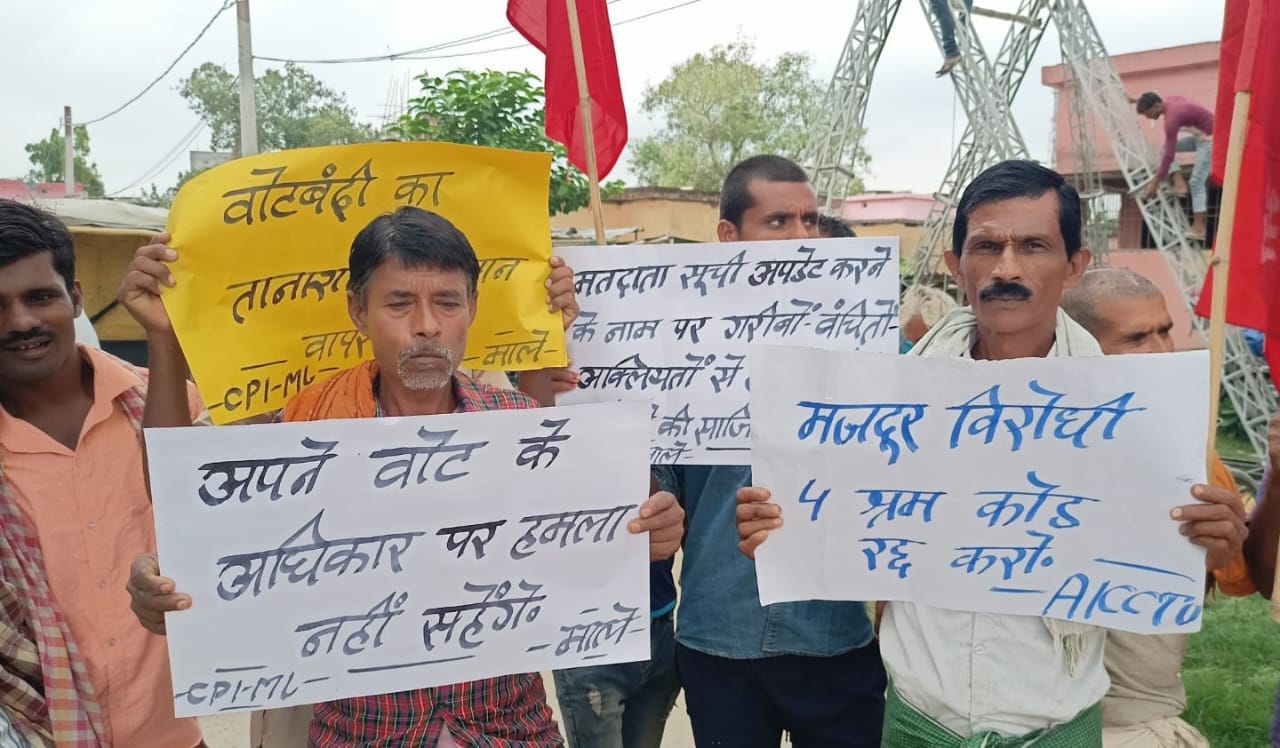 वोटबंदी का
CPI-ML
-माले-
मतदाता सूची अपडेट करने
के नाम पर गरीबों-वंचितों
अक्लियतों से
की साजि
अपने वोट के
अधिकार पर हमला
नहीं सहेंगे.
-CPI-ML- -माले-
मजदूर विरोधी
4 श्रम कोड
रद्द करो.
AICCTU